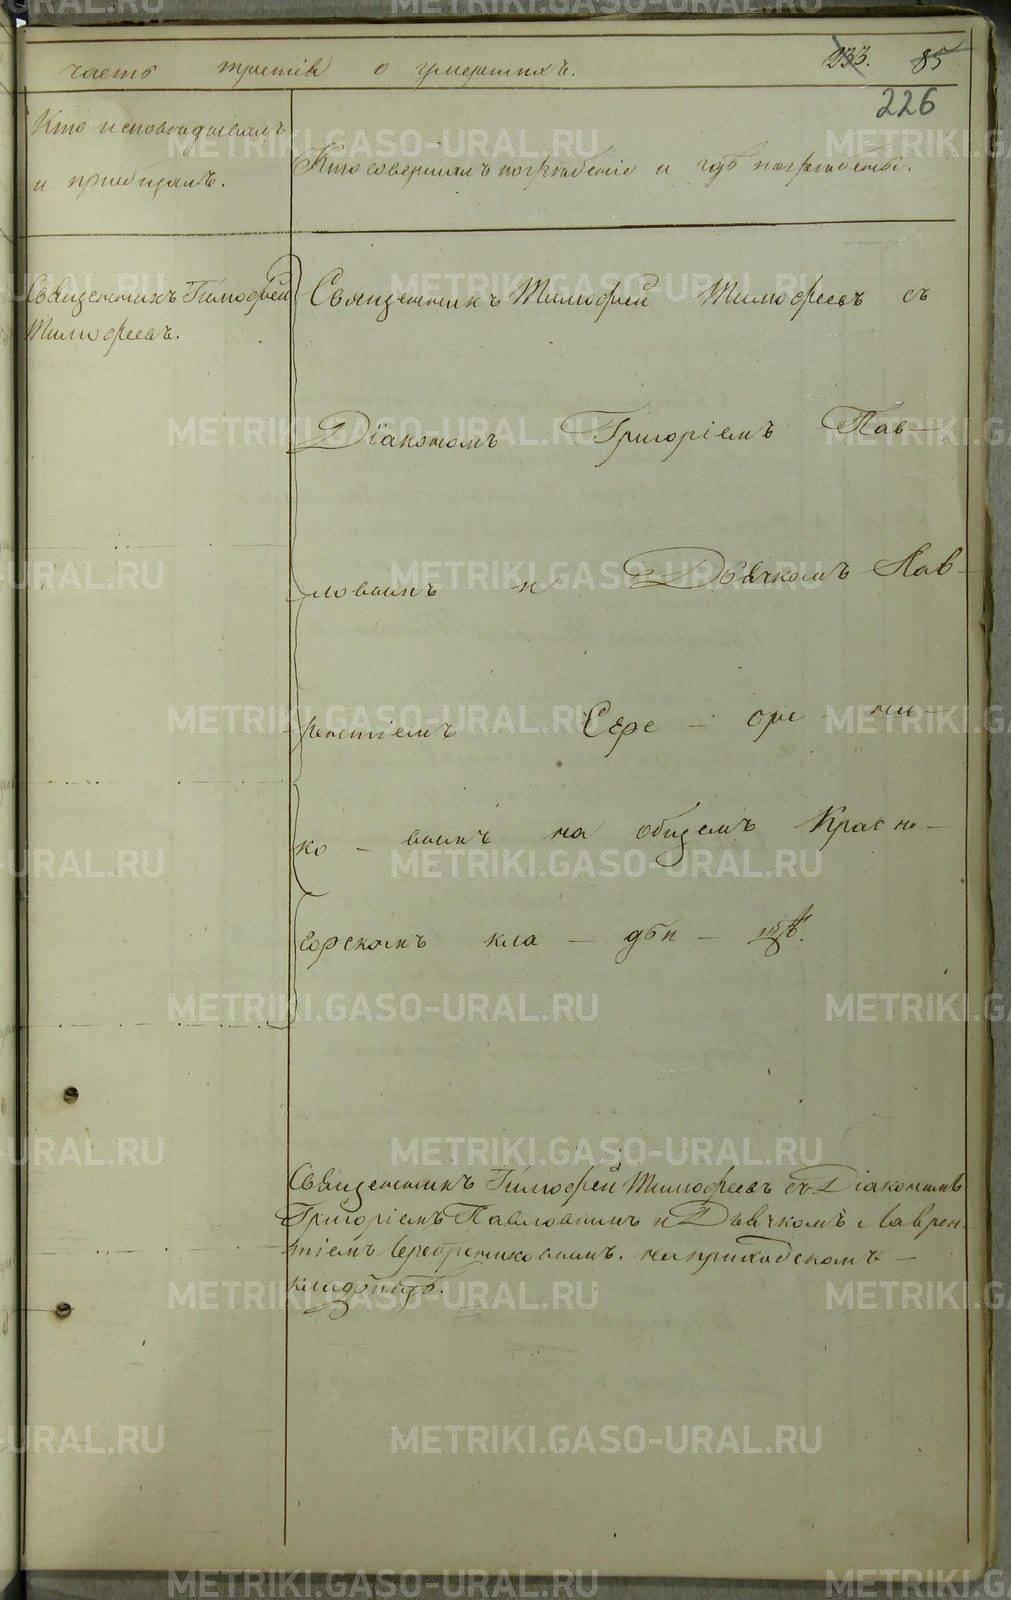 часть третія о умершихъ.
233. 85
226
Кто исповѣдывалъ
и пріобщалъ.
Кто совершалъ погребеніе и гдѣ погребены.
Священникъ Тимофей
Тимофеевъ.
Священникъ Тимофей Тимофеевъ съ
Діакономъ Григоріемъ Пав-
ловымъ и Дьячкомъ Лав-
рентіемъ Сере - бре - нни-
ко - вымъ на общемъ Красно-
горскомъ кла - дби - щѣ.
Священникъ Тимофей Тимофеевъ съ Діакономъ
Григоріемъ Павловымъ и Дьячкомъ Лаврен-
тіемъ Серебренниковымъ. на приходскомъ -
кладбищѣ.
METRIKI.GASO-URAL.RU